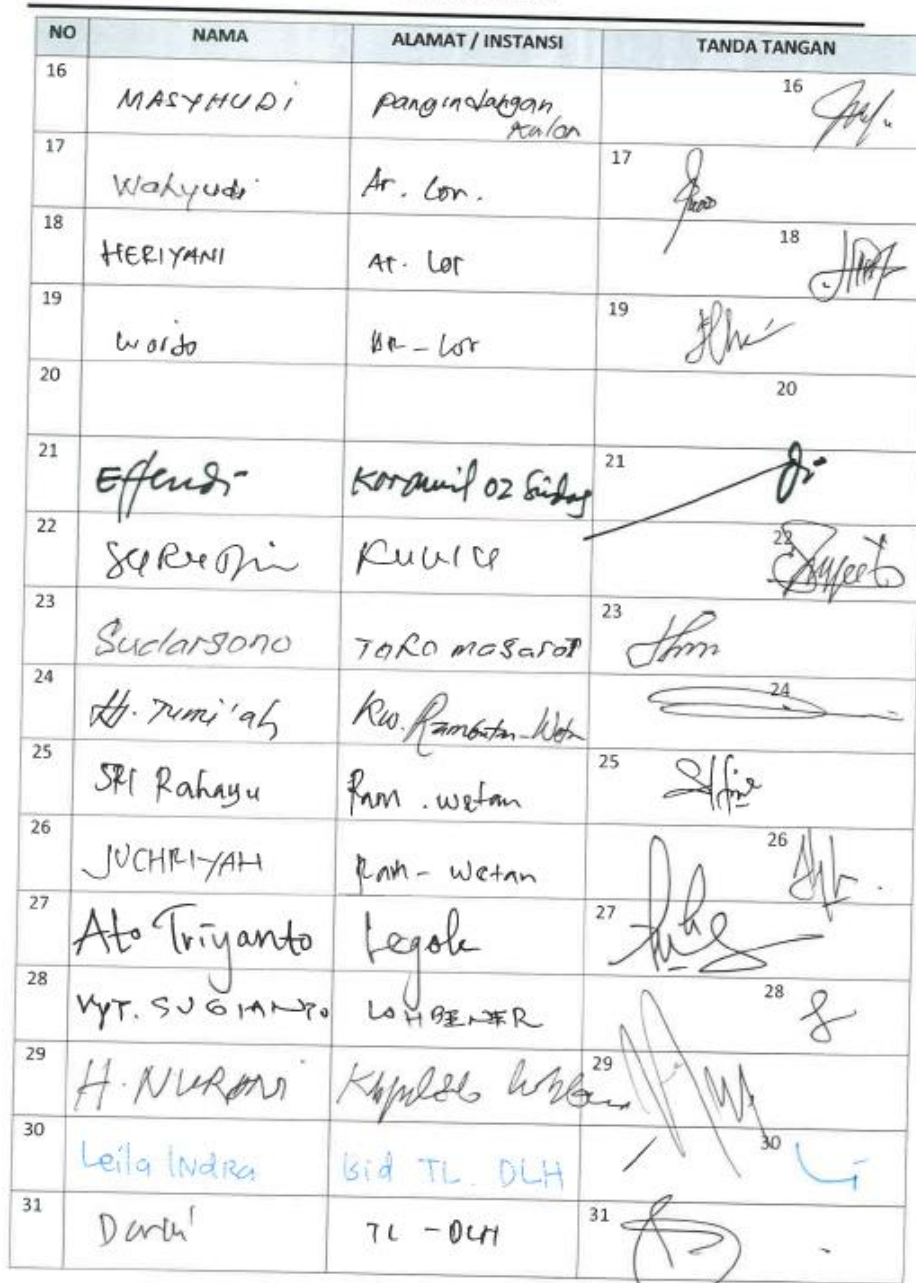 NO NAMA ALAMAT / INSTANSI TANDA TANGAN
16 MASYHUDI pangindangan kulon 16
17 Wahyudi Ar. Lor. 17
18 HERIYANI Ar. Lor 18
19 19
20 20
21 Effendi Koramil 02 21
22 22
23 Sudarsono 23
24 H. Tumi'ah Kw. Rambutan-Wetan 24
25 SRI Rahayu Ram. wetan 25
26 JUCHRIYAH Ram - wetan 26
27 Ato Triyanto Legok 27
28 SUGIANTO LOHBENER 28
29 H. NURANI 29
30 Leila INDRA Bid TL. DLH 30
31 TL - DLH 31